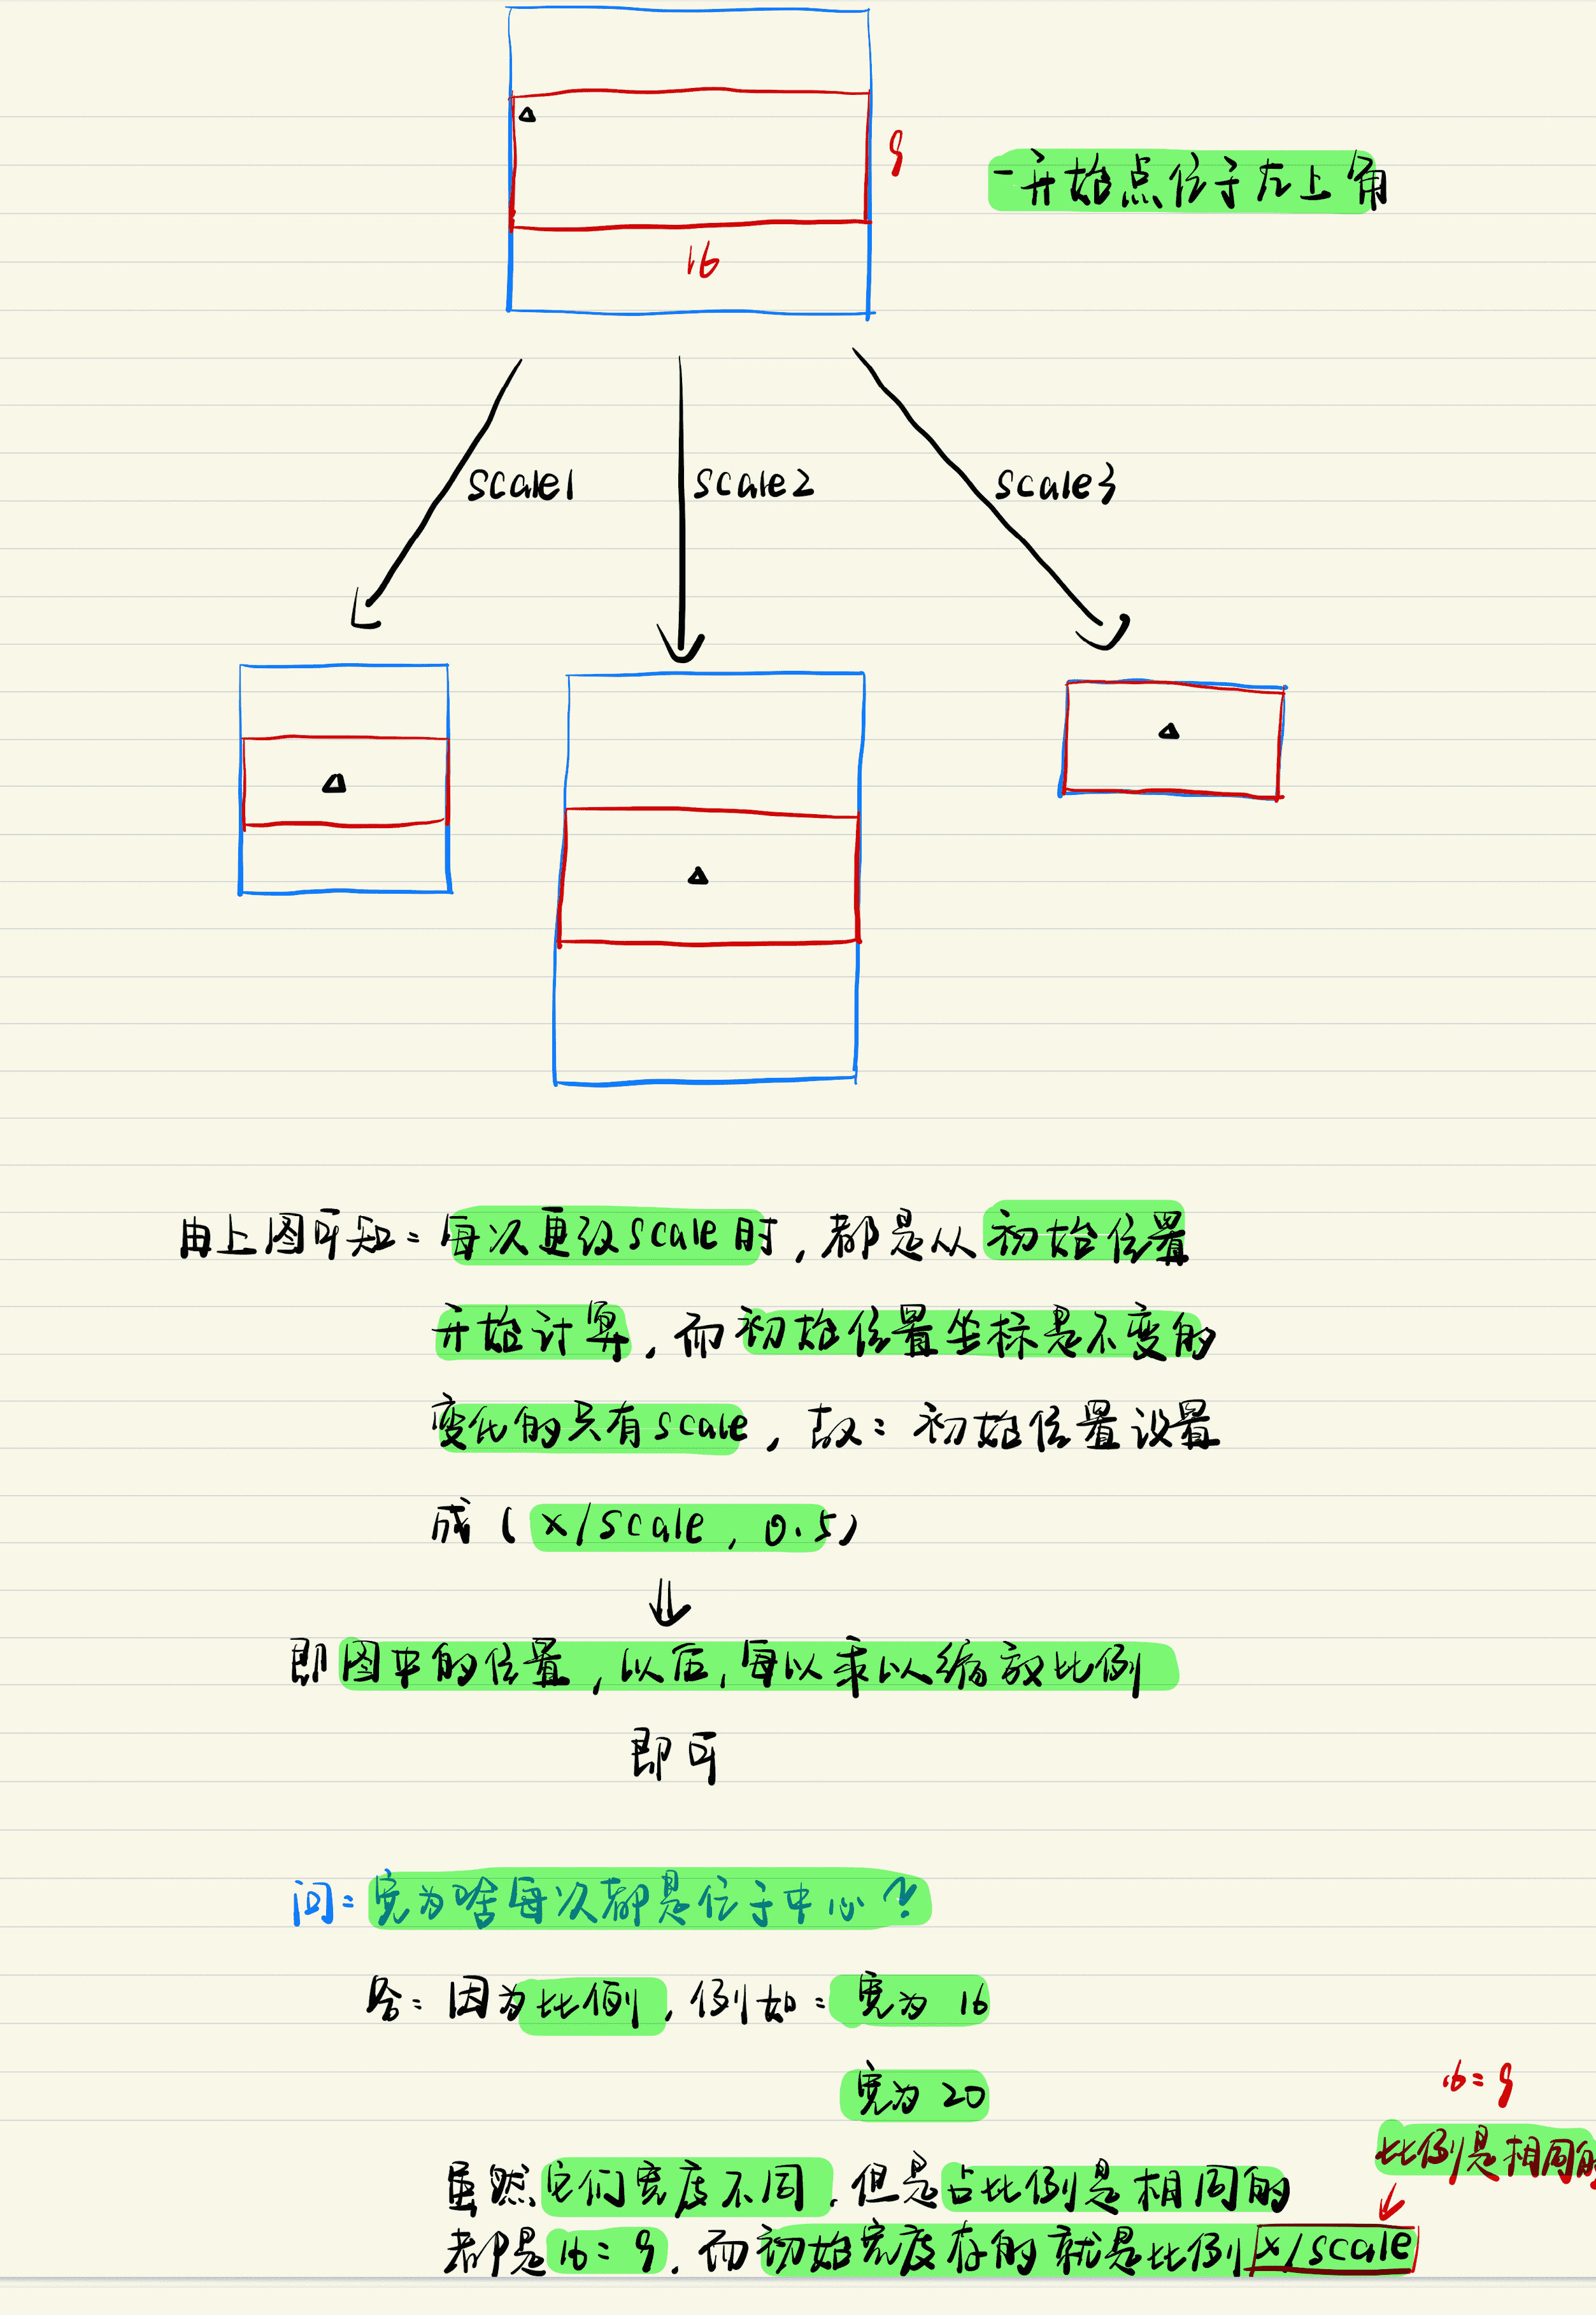 9
一开始点位于左上角
16
scale1 scale2 scale3
由上图可知：每次更改scale时，都是从初始位置
开始计算，而初始位置坐标是不变的
变化的只有scale，故：初始位置设置
成（x/scale，0.5）
即图中的位置，以后，每以乘以缩放比例
即可
问：宽为啥每次都是位于中心？
答：因为比例，例如：宽为 16
宽为 20
16：9
比例是相同的
虽然它们宽度不同，但是占比例是相同的
都是16：9，而初始宽度存的就是比例x/scale